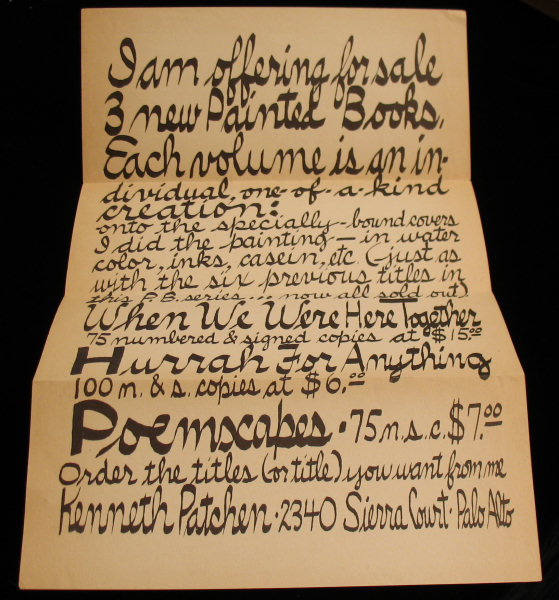 I am offering for sale
3 new Painted Books.
Each volume is an in-
dividual, one-of-a-kind
creation:
onto the specially-bound covers
I did the painting — in water
color, inks, casein, etc. (just as
with the six previous titles in
this P.B. series... now all sold out)
When We Were Here Together
75 numbered & signed copies at $15.00
Hurrah For Anything
100 n. & s. copies at $6.00
Poemscapes · 75 n.s.c. $7.00
Order the titles (or title) you want from me
Kenneth Patchen · 2340 Sierra Court · Palo Alto